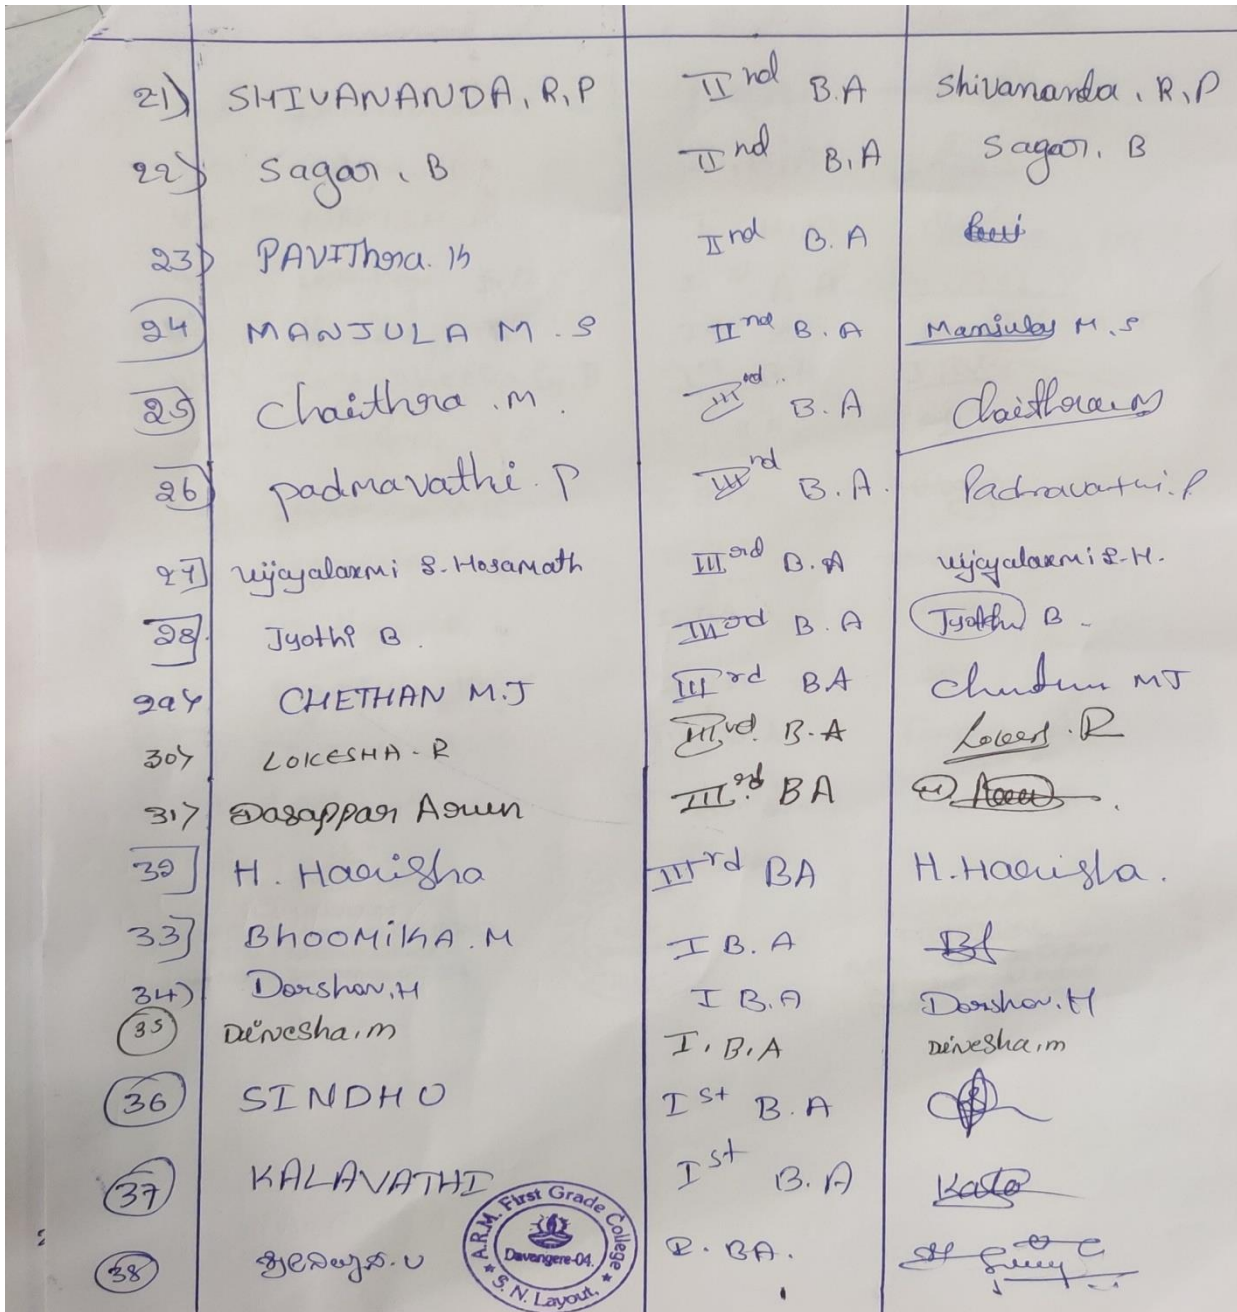 21) SHIVANANDA, R, P IInd B.A Shivananda, R, P
22) Sagar, B IInd B.A Sagar, B
23) PAVIThra. K IInd B.A
24) MANJULA M. S IInd B. A Manjula M. S
25) Chaithra .M. IIIrd B. A Chaithra M
26) Padmavathi. P IIInd B. A. Padmavathi. P
27) Vijayalaxmi S. Hosamath IIIrd B. A Vijayalaxmi S. H.
28) Jyothi B. IIIrd B. A Jyothi B
29) CHETHAN M.J IIIrd B.A MJ
30) LOKESHA - R IIIrd. B. A R
31) Dasappar Arun IIIrd BA
32) H. Harisha IIIrd BA H. Harisha.
33) BhooMiKA. M I B. A
34) Darshan, H I B. A Darshan. H
35 Dinesha, m I. B. A Dinesha, m
36 SINDHU Ist B. A
37 KALAVATHI Ist B. A
38 I. BA.
A.R.M. First Grade College
Davangere-04.
* S. N. Layout, *